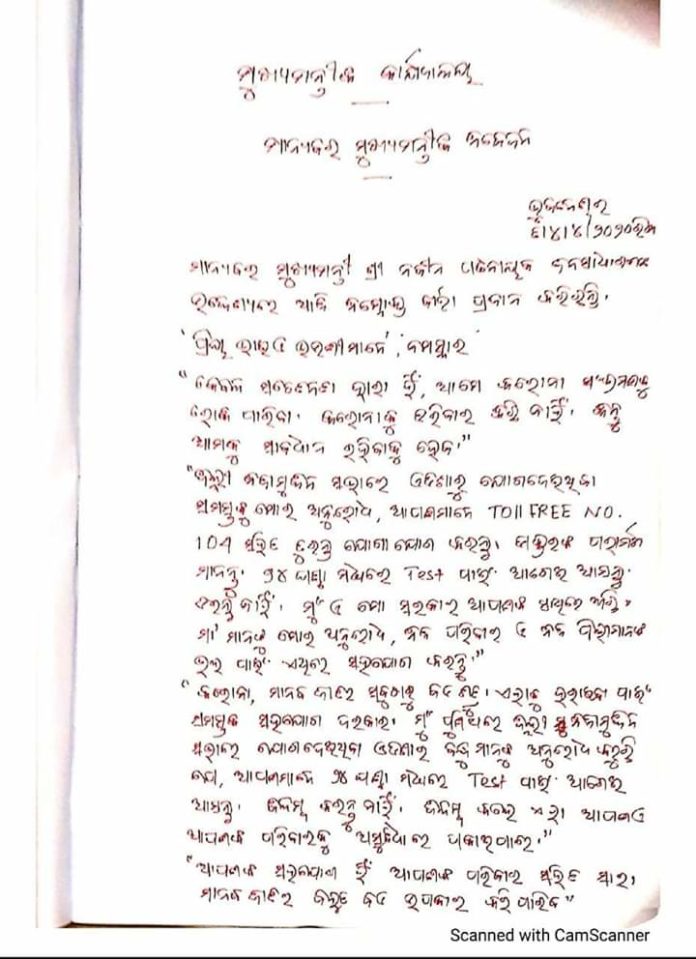 ମୁଖ୍ୟମନ୍ତ୍ରୀଙ୍କ କାର୍ଯ୍ୟାଳୟ
ମାନ୍ୟବର ମୁଖ୍ୟମନ୍ତ୍ରୀଙ୍କ ନିବେଦନ
ଭୁବନେଶ୍ୱର
୫।୪।୨୦୨୦ରିଖ
ମାନ୍ୟବର ମୁଖ୍ୟମନ୍ତ୍ରୀ ଶ୍ରୀ ନବୀନ ପଟ୍ଟନାୟକ ଜନସାଧାରଣଙ୍କ
ଉଦ୍ଦେଶ୍ୟରେ ଆଜି ବାର୍ତ୍ତା ପ୍ରଦାନ କରିଛନ୍ତି।
'ପ୍ରିୟ ଭାଇ ଓ ଭଉଣୀମାନେ', ନମସ୍କାର
"କେବଳ ସଚେତନତା ଦ୍ୱାରା ହିଁ, ଆମେ କରୋନା ସଂକ୍ରମଣକୁ
ରୋକି ପାରିବା। କରୋନାକୁ ଡରିବାର ନାହିଁ। କିନ୍ତୁ
ଆମକୁ ସାବଧାନ ରହିବାକୁ ହେବ।"
"ଦିଲ୍ଲୀ ନିଜାମୁଦ୍ଦିନ ସଭାରେ ଓଡିଶାରୁ ଯୋଗଦେଇଥିବା
ସମସ୍ତଙ୍କୁ ମୋର ଅନୁରୋଧ, ଆପଣମାନେ TOll FREE NO.
104 ସହିତ ତୁରନ୍ତ ଯୋଗାଯୋଗ କରନ୍ତୁ। ଡାକ୍ତରଙ୍କ ପରାମର୍ଶ
ମାନନ୍ତୁ। ୨୪ ଘଣ୍ଟା ମଧ୍ୟରେ Test ପାଇଁ ଆଗେଇ ଆସନ୍ତୁ।
ଡରନ୍ତୁ ନାହିଁ। ମୁଁ ଓ ମୋ ସରକାର ଆପଣଙ୍କ ସାଥିରେ ଅଛି।
ମା' ମାନଙ୍କୁ ମୋର ଅନୁରୋଧ, ନିଜ ପରିବାର ଓ ନିଜ ପିଲାମାନଙ୍କ
ଭଲ ପାଇଁ ଏଥିରେ ସହଯୋଗ କରନ୍ତୁ।"
"କରୋନା, ମାନବ ଜାତିର ସବୁଠାରୁ ବଡ ଶତ୍ରୁ। ଏହାକୁ ହରାଇବା ପାଇଁ
ସମସ୍ତଙ୍କ ସହଯୋଗ ଦରକାର। ମୁଁ ପୁଣିଥରେ ଦିଲ୍ଲୀ ନିଜାମୁଦ୍ଦିନ
ସଭାରେ ଯୋଗଦେଇଥିବା ଓଡିଶାର ବନ୍ଧୁମାନଙ୍କୁ ଅନୁରୋଧ କରୁଛି
ଯେ, ଆପଣମାନେ ୨୪ ଘଣ୍ଟା ମଧ୍ୟରେ Test ପାଇଁ ଆଗେଇ
ଆସନ୍ତୁ। ବିଳମ୍ବ କରନ୍ତୁ ନାହିଁ। ବିଳମ୍ବ କଲେ ଏହା ଆପଣ ଓ
ଆପଣଙ୍କ ପରିବାରକୁ ଅସୁବିଧାରେ ପକାଇପାରେ।"
"ଆପଣଙ୍କ ସହଯୋଗ ହିଁ ଆପଣଙ୍କ ପରିବାର ସହିତ ସାରା
ମାନବ ଜାତିର ବହୁତ ବଡ ଉପକାର କରି ପାରିବ"
Scanned with CamScanner